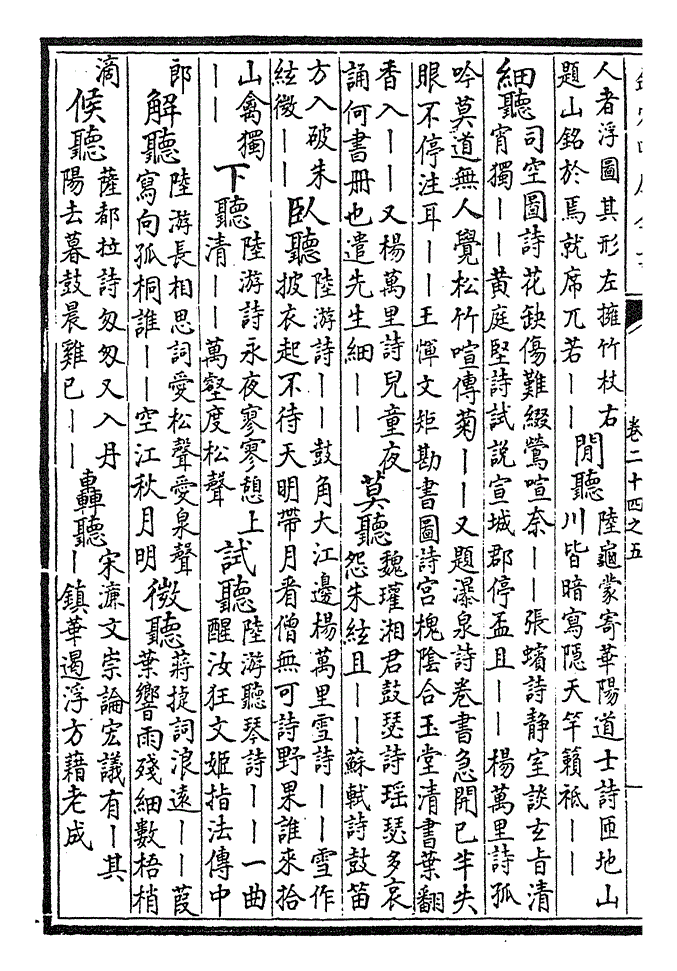 卷二十四之五
人者浮圖其形左擁竹杖右
題山銘於焉就席兀若||
閒聽
陸龜蒙寄華陽道士詩匝地山
川皆暗寫隱天竿籟祗||
細聽
司空圖詩花缺傷難綴鶯喧奈||張蠙詩静室談玄旨清
宵獨||黄庭堅詩試説宣城郡停盃且||楊萬里詩孤
吟莫道無人覺松竹喧傳菊||又題瀑泉詩卷書急開已半失
眼不停注耳||王惲文矩勘書圖詩宫槐陰合玉堂清書葉翻
香入||又楊萬里詩兒童夜
誦何書册也遣先生細||
莫聽
魏璀湘君鼓瑟詩瑶瑟多哀
怨朱絃且||蘇軾詩鼓笛
方入破朱
絃微||
臥聽
陸游詩||鼓角大江邊楊萬里雪詩||雪作
披衣起不待天明帶月看僧無可詩野果誰來拾
山禽獨
||
下聽
陸游詩永夜寥寥憩上
清||萬壑度松聲
試聽
陸游聽琴詩||一曲
醒汝狂文姬指法傳中
郎
解聽
陸游長相思詞愛松聲愛泉聲
寫向孤桐誰||空江秋月明
微聽
蔣捷詞浪遠||葭
葉響雨殘細數梧梢
滴
候聽
薩都拉詩匆匆又入丹
陽去暮鼓晨雞已||
轟聽
宋濂文崇論宏議有|其
|鎮華遏浮方藉老成